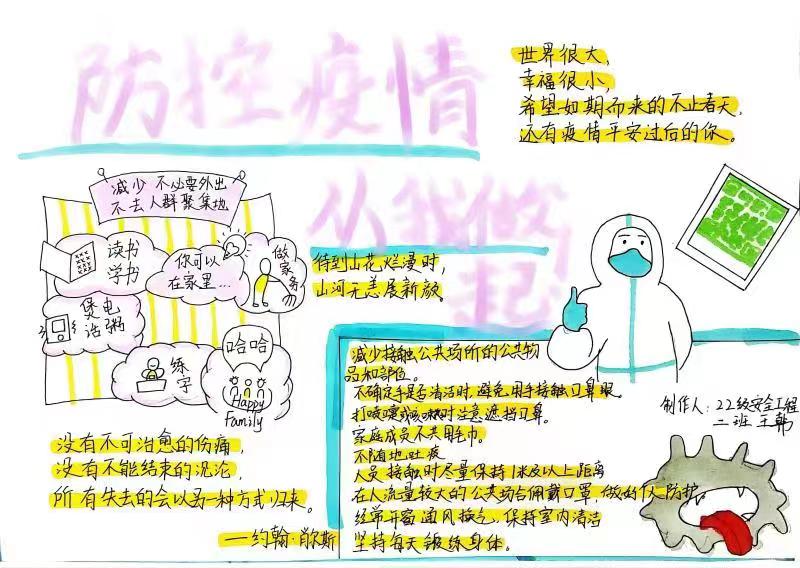 防控疫情
从我做起
世界很大,
幸福很小,
希望如期而来的不止春天,
还有疫情平安过后的你。
减少不必要外出
不去人群聚集地
读书
学书
你可以
在家里...
做家务
煲电
话粥
练字
哈哈
Happy
Family
待到山花烂漫时,
山河无恙展新颜。
没有不可治愈的伤痛,
没有不能结束的沉沦,
所有失去的会以另一种方式归来。
——约翰·肖尔斯
减少接触公共场所的公共物
品和部位。
不确定手是否清洁时,避免用手接触口鼻眼。
打喷嚏或咳嗽时注意遮挡口鼻。
家庭成员不共用毛巾。
不随地吐痰
人员接触时尽量保持1米及以上距离
在人流量较大的公共场合佩戴口罩,做好个人防护。
经常开窗通风换气,保持室内清洁
坚持每天锻练身体。
制作人:22级安全工程
二班 王韩